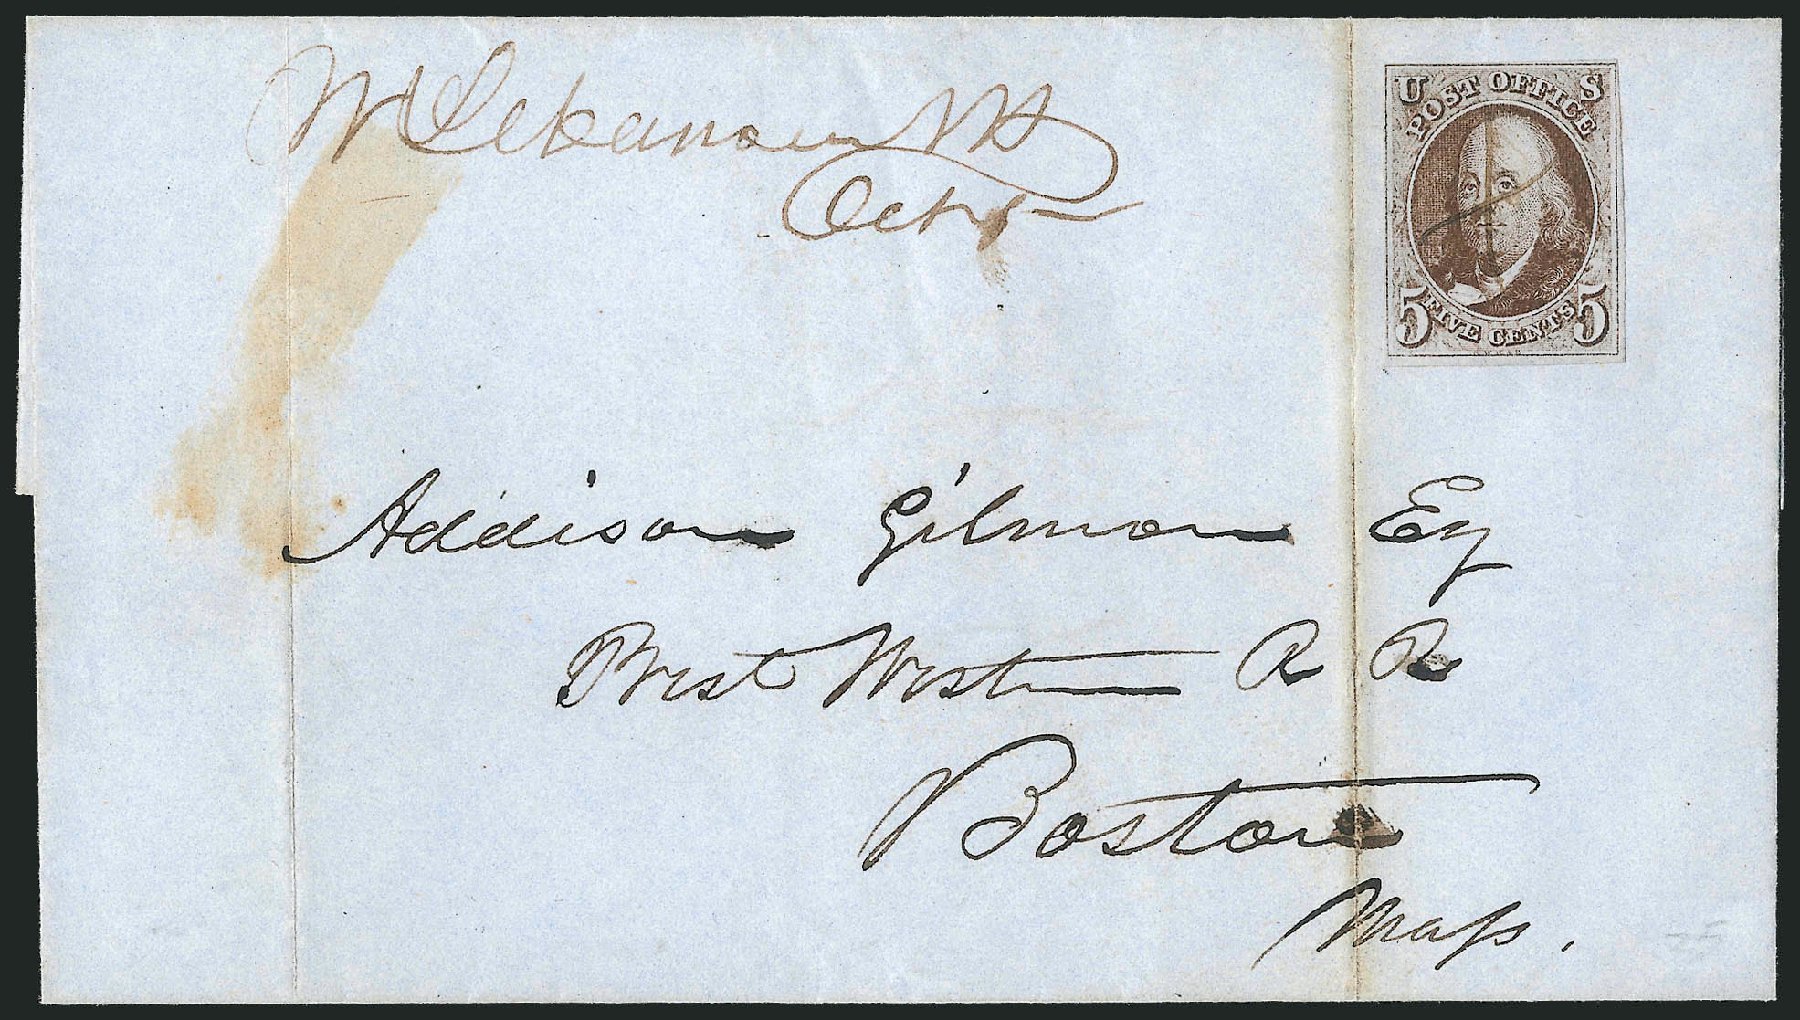 W Lebanon NH
Oct
U S
POST OFFICE
5 FIVE CENTS 5
Addison Gilmore Eq
Prest Western R R
Boston
Mass.